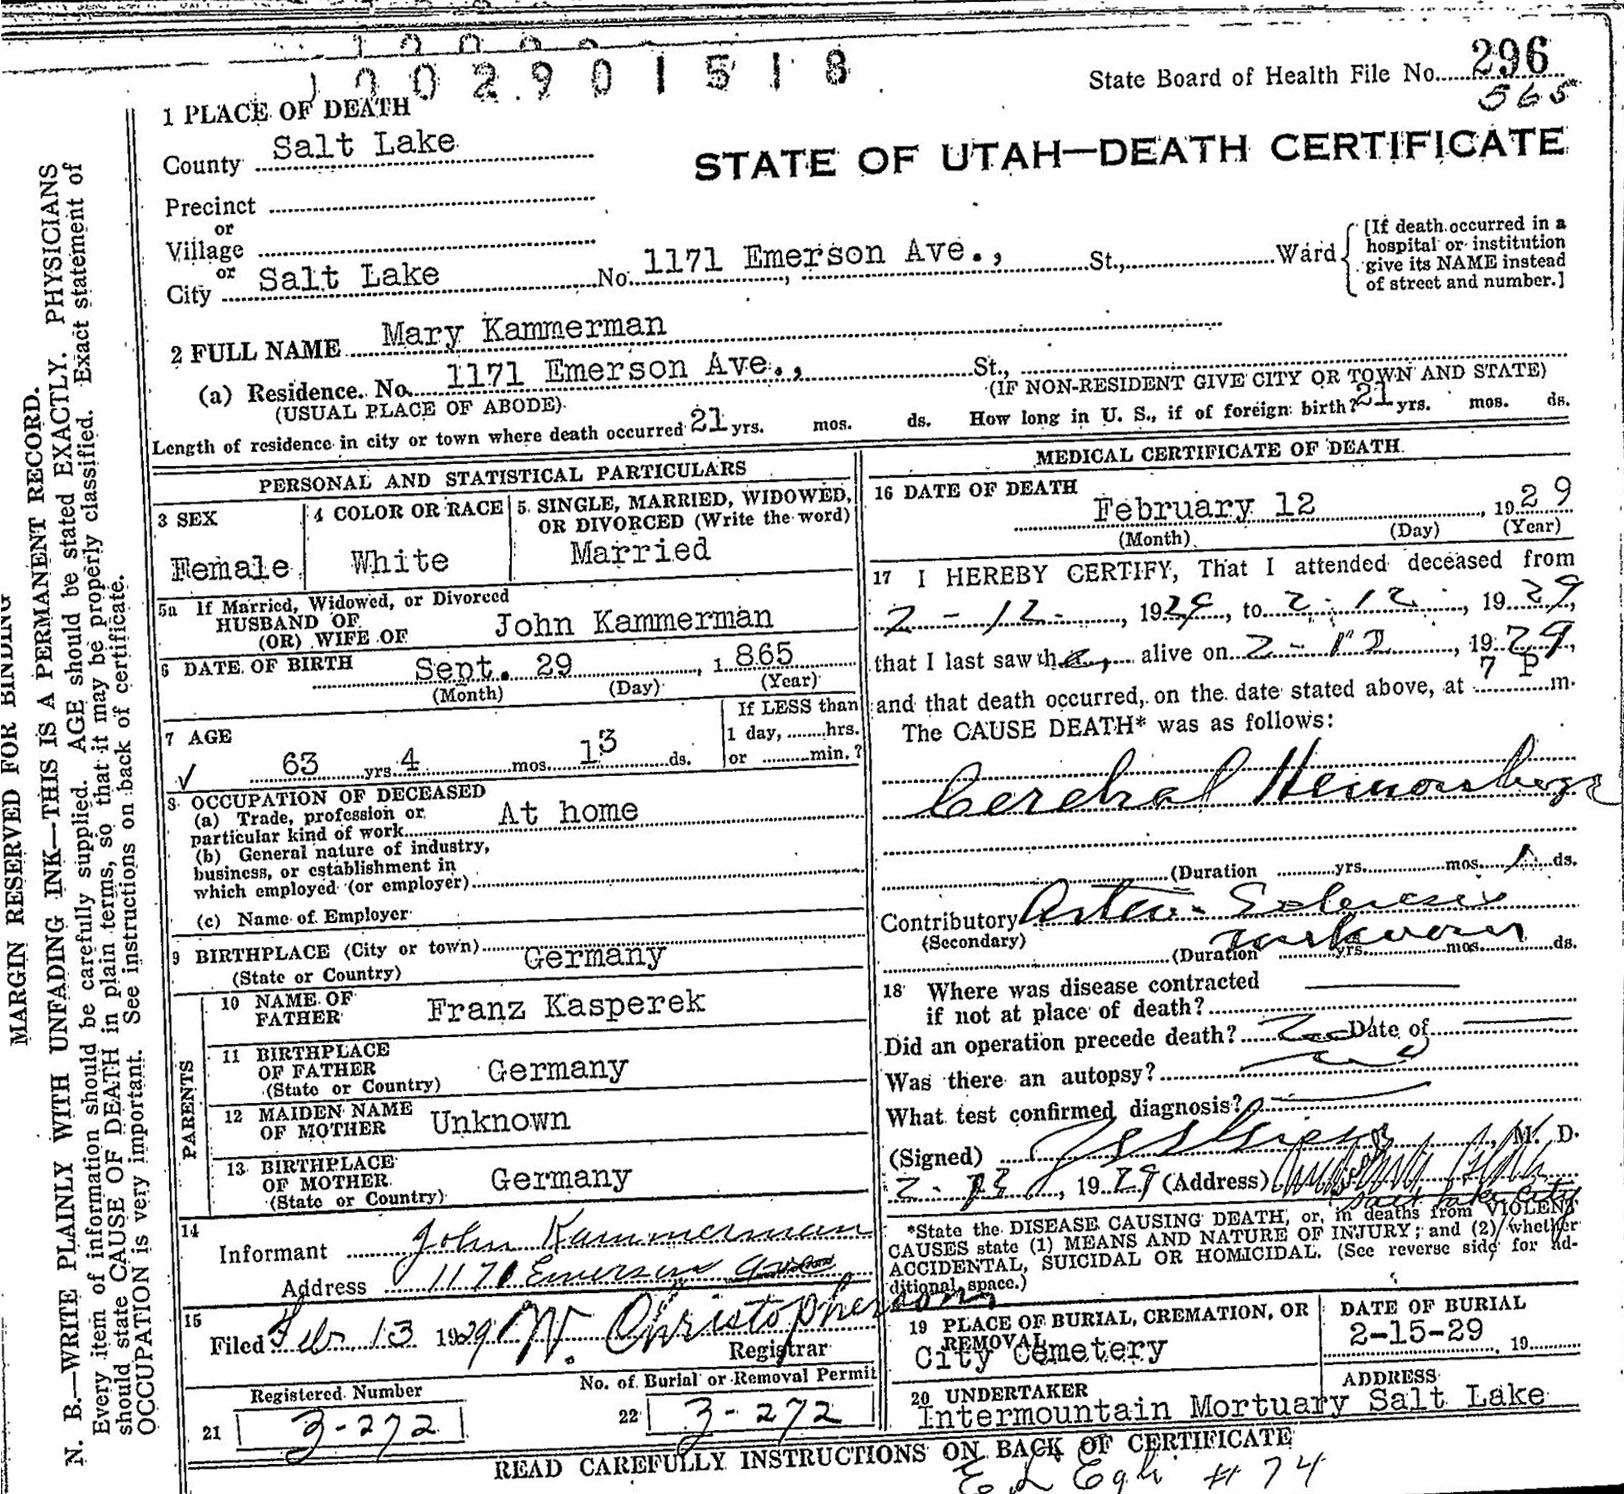 1 0 0 2 9 0 1 5 1 8
State Board of Health File No. 296
565
1 PLACE OF DEATH
County Salt Lake
STATE OF UTAH—DEATH CERTIFICATE
Precinct
or
Village
or
City Salt Lake No. 1171 Emerson Ave., St., Ward
[If death occurred in a
hospital or institution
give its NAME instead
of street and number.]
2 FULL NAME Mary Kammerman
(a) Residence. No. 1171 Emerson Ave., St.,
(USUAL PLACE OF ABODE)
(IF NON-RESIDENT GIVE CITY OR TOWN AND STATE)
Length of residence in city or town where death occurred 21 yrs. mos. ds. How long in U. S., if of foreign birth? 21 yrs. mos. ds.
PERSONAL AND STATISTICAL PARTICULARS
3 SEX
Female
4 COLOR OR RACE
White
5. SINGLE, MARRIED, WIDOWED,
OR DIVORCED (Write the word)
Married
5a If Married, Widowed, or Divorced
HUSBAND OF
(OR) WIFE OF John Kammerman
6 DATE OF BIRTH Sept. 29, 1865
(Month) (Day) (Year)
7 AGE
63 yrs. 4 mos. 13 ds.
If LESS than
1 day, hrs.
or min.?
8 OCCUPATION OF DECEASED
(a) Trade, profession or
particular kind of work At home
(b) General nature of industry,
business, or establishment in
which employed (or employer)
(c) Name of Employer
9 BIRTHPLACE (City or town) Germany
(State or Country)
PARENTS
10 NAME OF
FATHER Franz Kasperek
11 BIRTHPLACE
OF FATHER Germany
(State or Country)
12 MAIDEN NAME
OF MOTHER Unknown
13 BIRTHPLACE
OF MOTHER Germany
(State or Country)
14
Informant John Kammerman
Address 1171 Emerson Ave
15
Filed Feb 13 1929 W. Christopherson
Registrar
Registered Number
21 3-272
No. of Burial or Removal Permit
22 3-272
MEDICAL CERTIFICATE OF DEATH
16 DATE OF DEATH
February 12, 1929
(Month) (Day) (Year)
17 I HEREBY CERTIFY, That I attended deceased from
2-12-, 1929, to 2-12, 1929,
that I last saw her alive on 2-12, 1929,
and that death occurred, on the date stated above, at 7 P m.
The CAUSE DEATH* was as follows:
Cerebral Hemorrhage
(Duration yrs. mos. 1 ds.
Contributory Arterio-Sclerosis
(Secondary)
(Duration unknown yrs. mos. ds.
18 Where was disease contracted
if not at place of death?
Did an operation precede death? No Date of
Was there an autopsy? no
What test confirmed diagnosis?
(Signed) M. D.
2-13, 1929 (Address)
Salt Lake City
*State the DISEASE CAUSING DEATH, or, in deaths from VIOLENT
CAUSES state (1) MEANS AND NATURE OF INJURY; and (2) whether
ACCIDENTAL, SUICIDAL OR HOMICIDAL. (See reverse side for ad-
ditional space.)
19 PLACE OF BURIAL, CREMATION, OR
REMOVAL
City Cemetery
DATE OF BURIAL
2-15-29, 19
20 UNDERTAKER
Intermountain Mortuary
ADDRESS
Salt Lake
READ CAREFULLY INSTRUCTIONS ON BACK OF CERTIFICATE
# 74
MARGIN RESERVED FOR BINDING
N. B.—WRITE PLAINLY WITH UNFADING INK—THIS IS A PERMANENT RECORD.
Every item of information should be carefully supplied. AGE should be stated EXACTLY. PHYSICIANS
should state CAUSE OF DEATH in plain terms, so that it may be properly classified. Exact statement of
OCCUPATION is very important. See instructions on back of certificate.